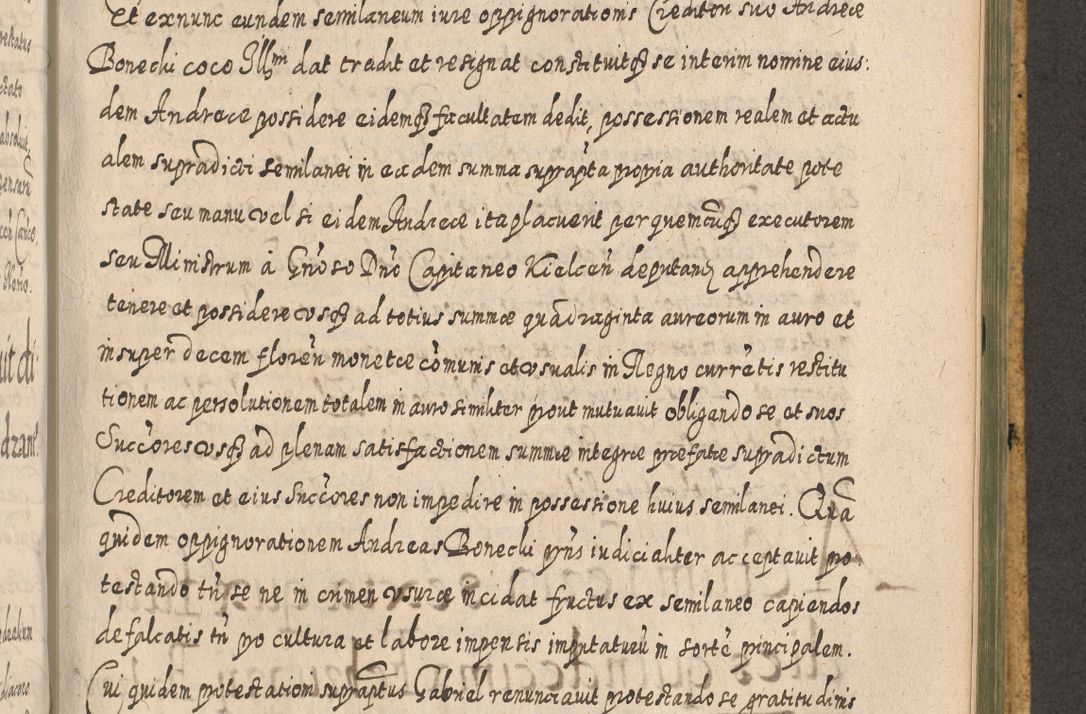 Et ex nunc eundem semilaneum iure oppignorationis Creditori suo Andreæ
Bonechi coco Ill̃m dat tradit et resignat constituitq̃ se interim nomine eius:
dem Andreæ possidere eidemq̃ facultatem dedit, possessionem realem et actu
alem supradicti semilanei in eadem summa supraptã propia authoritate pote
state seu manu vel si eidem Andreæ ita placuerit per quemcũq̃ executorem
seu Ministrum à Gñoso Dño Capitaneo Kielceñ deputanꝫ apprehendere
tenere et possidere vsq̃ ad totius summæ quadraginta aureorum in auro et
insuper decem floreñ monetæ cõmunis et vsualis in Regno currẽtis restitu
tionem ac persolutionem totalem in auro similiter prout mutuauit obligando se et suos
Succõres vsq̃ ad plenam satisfactionem summæ integræ præfatæ supradictum
Creditorem et eius Succõres non impedire in possessione huius semilanei. Quã
quidem oppignorationem Andreas Bonechi pr̃ns iudicialiter acceptauit pro-
testando tñ se ne in crimen vsuræ incidat fructus ex semilaneo capiendos
defalcatis tñ pro cultura et labore impensis imputaturũ in sortẽ principalem.
Cui quidem protestationi supraptus Gabriel renunciauit protestando se gratitudinis